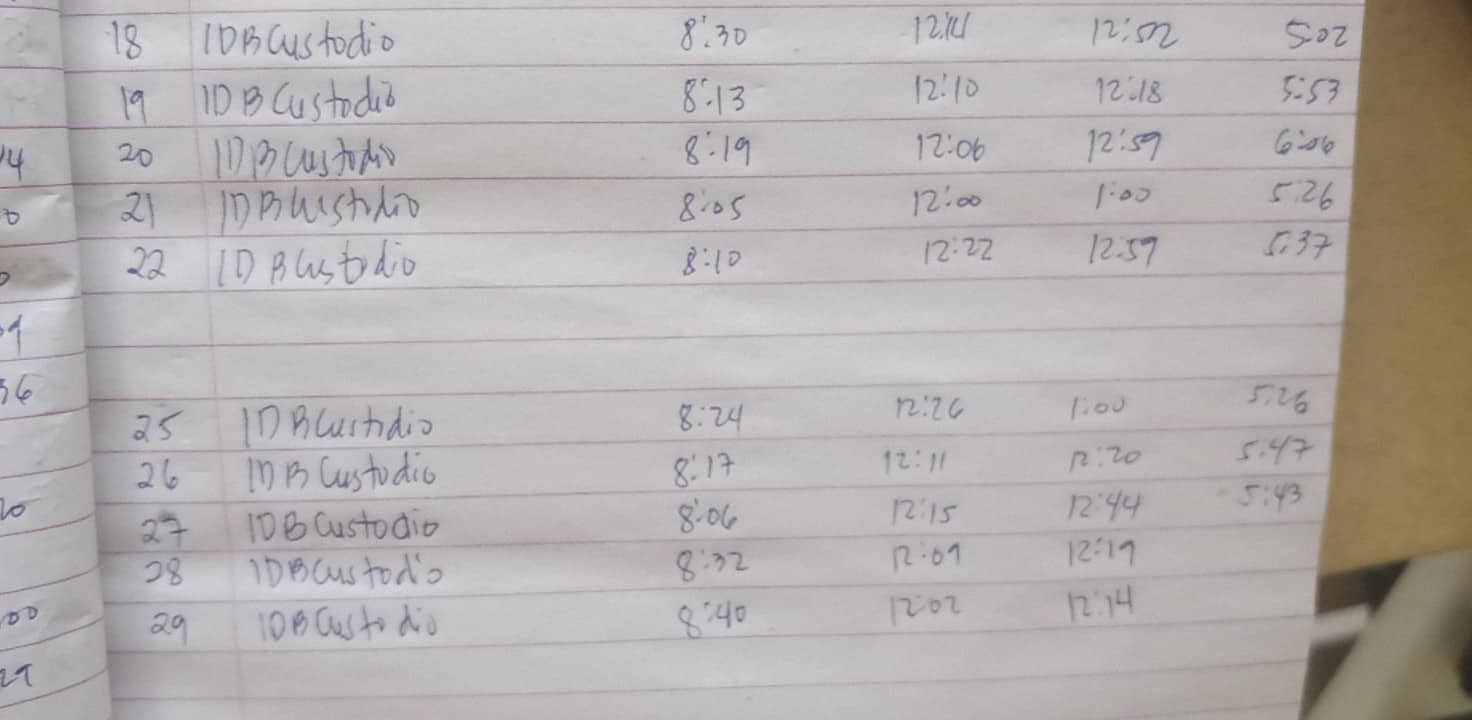 18 IDBCustodio 8:30 12:14 12:52 5:02
19 IDBCustodio 8:13 12:10 12:18 5:53
14 20 IDBCustodio 8:19 12:06 12:59 6:06
21 IDBCustodio 8:05 12:00 1:00 5:26
22 IDBCustodio 8:10 12:22 12:59 5:37
36
25 IDBCustodio 8:24 12:26 1:00 5:26
26 IDBCustodio 8:17 12:11 12:20 5:47
27 IDBCustodio 8:06 12:15 12:44 5:43
28 IDBCustodio 8:32 12:09 12:19
00 29 IDBCustodio 8:40 12:02 12:14